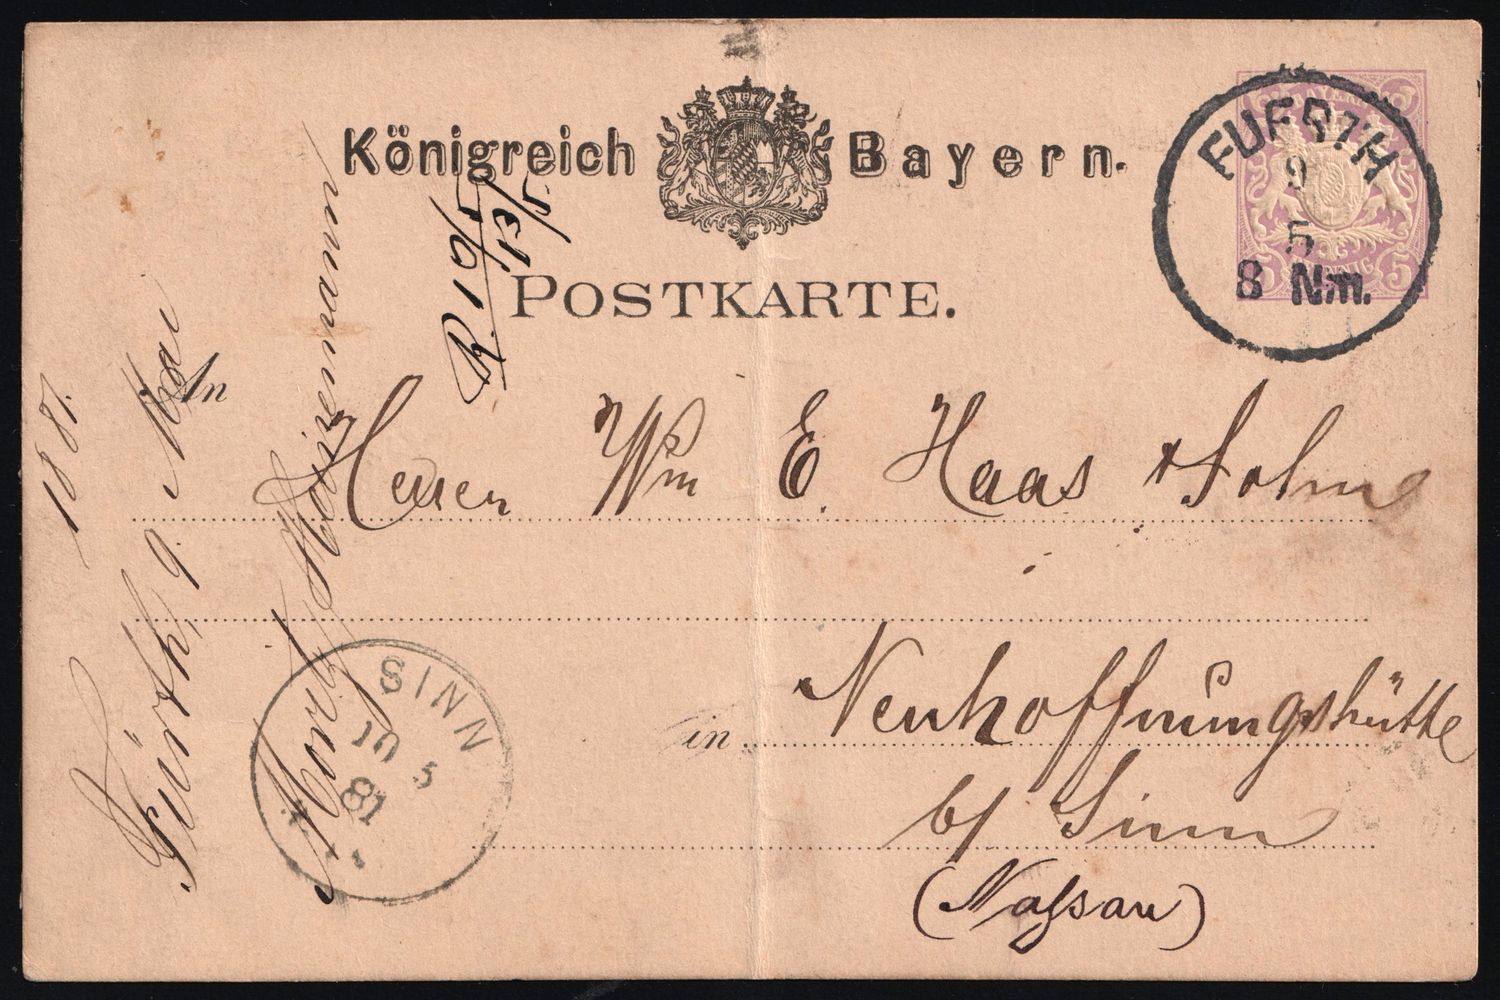 Königreich Bayern.
POSTKARTE.
BAYERN
5 PFENNIG 5
FUERTH
9
5
8 Nm.
R. 10/5
13/5
An
Herren Wm E. Haas & Sohn
Neuhoffnungshütte
in
b/ Sinn
(Naſsau)
SINN
10 5
81
Fürth, 9. Mai
1881.
Moritz